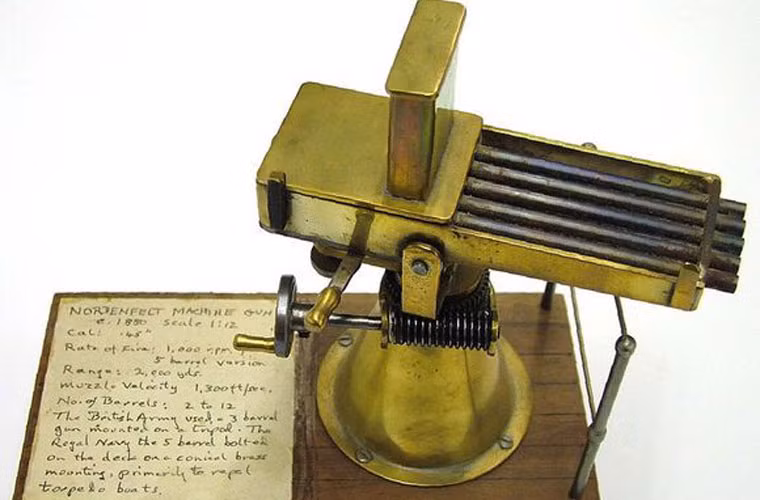 NORDENFELT MACHINE GUN
c. 1880 Scale 1:12
Cal: .45"
Rate of Fire: 1,000 rpm,
5 barrel version
Range: 2,000 yds.
Muzzle Velocity 1,300 ft/sec.
No. of Barrels: 2 to 12
The British Army used a 3 barrel
gun mounted on a tripod. The
Royal Navy the 5 barrel bolted
on the deck on a conical brass
mounting, primarily to repel
torpedo boats.